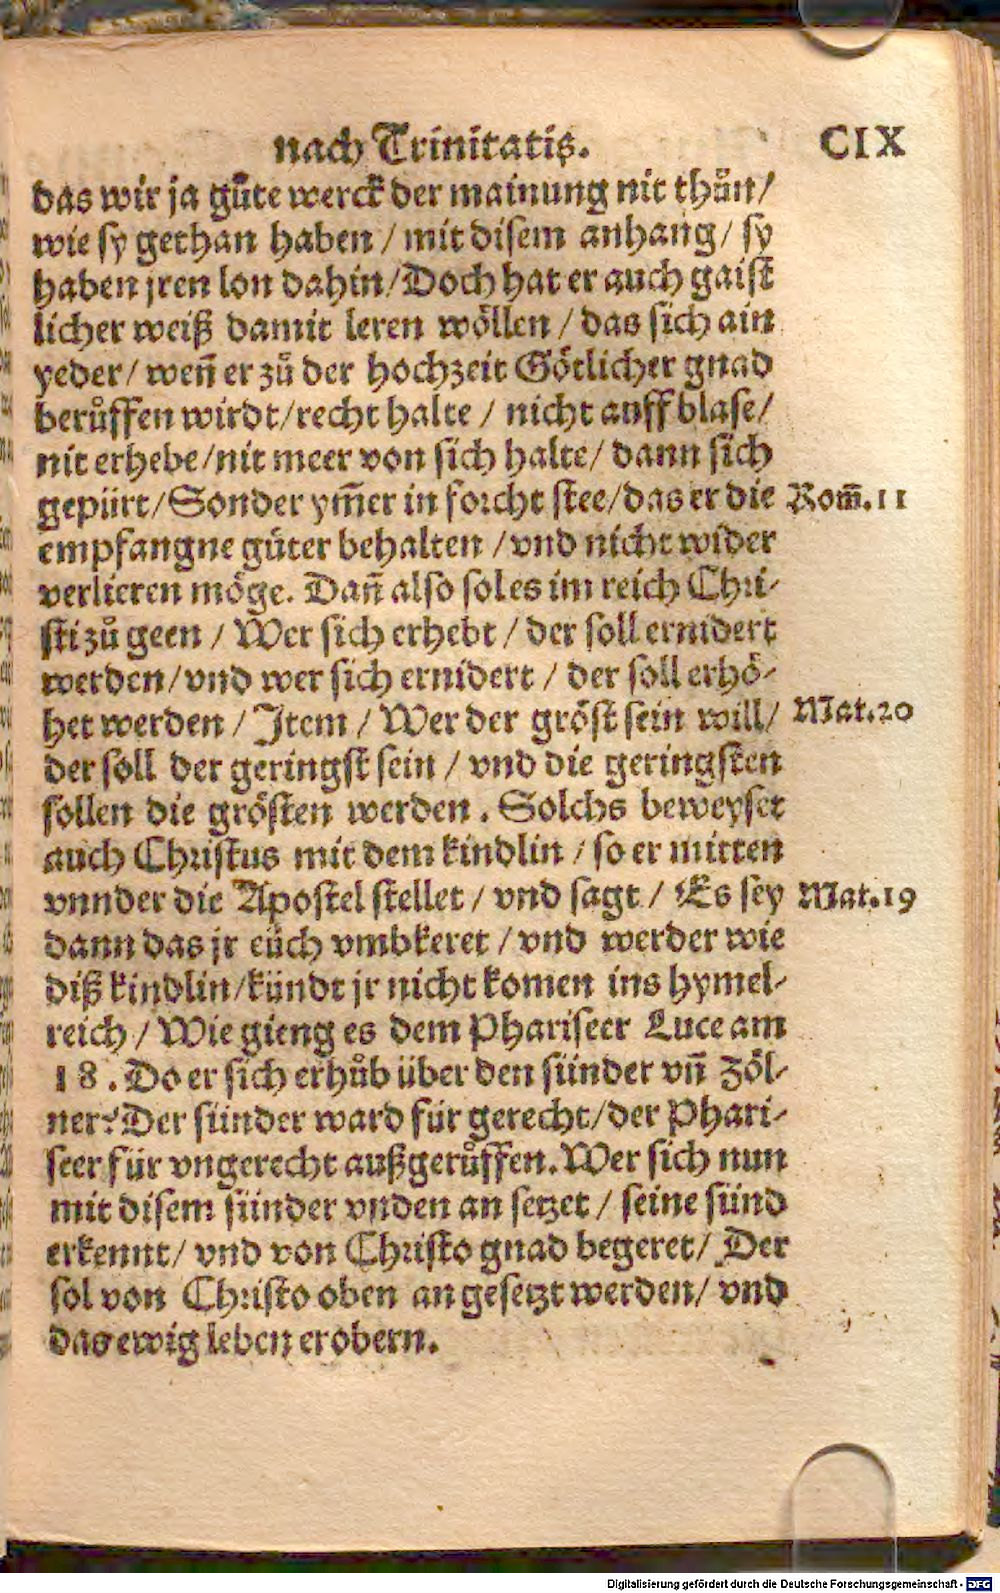 nach Trinitatis. CIX
das wir ja gůte werck der mainung nit thůn/
wie sy gethan haben / mit disem anhang / sy
haben jren lon dahin / Doch hat er auch gaist
licher weiß damit leren wöllen / das sich ain
yeder / weñ er zů der hochzeit Götlicher gnad
berůffen wirdt / recht halte / nicht auff blase /
nit erhebe / nit meer von sich halte / dann sich
gepürt / Sonder ym̃er in forcht stee / das er die Rom̃.11
empfangne gůter behalten / vnd nicht wider
verlieren möge. Dañ also sol es im reich Chri-
sti zů geen / Wer sich erhebt / der soll ernidert
werden / vnd wer sich ernidert / der soll erhö-
het werden / Item / Wer der gröst sein will / Mat.20
der soll der geringst sein / vnd die geringsten
sollen die grösten werden. Solchs beweyset
auch Christus mit dem kindlin / so er mitten
vnnder die Apostel stellet / vnd sagt / Es sey Mat.19
dann das jr eüch vmbkeret / vnd werder wie
diß kindlin / kündt jr nicht komen ins hymel-
reich / Wie gieng es dem Phariseer Luce am
18. Do er sich erhůb über den sünder vñ Zöl-
ner? Der sünder ward für gerecht / der Phari-
seer für vngerecht außgerůffen. Wer sich nun
mit disem sünder vnden an setzet / seine sünd
erkennt / vnd von Christo gnad begeret / Der
sol von Christo oben an gesetzt werden / vnd
das ewig leben erobern.
Digitalisierung gefördert durch die Deutsche Forschungsgemeinschaft - DFG